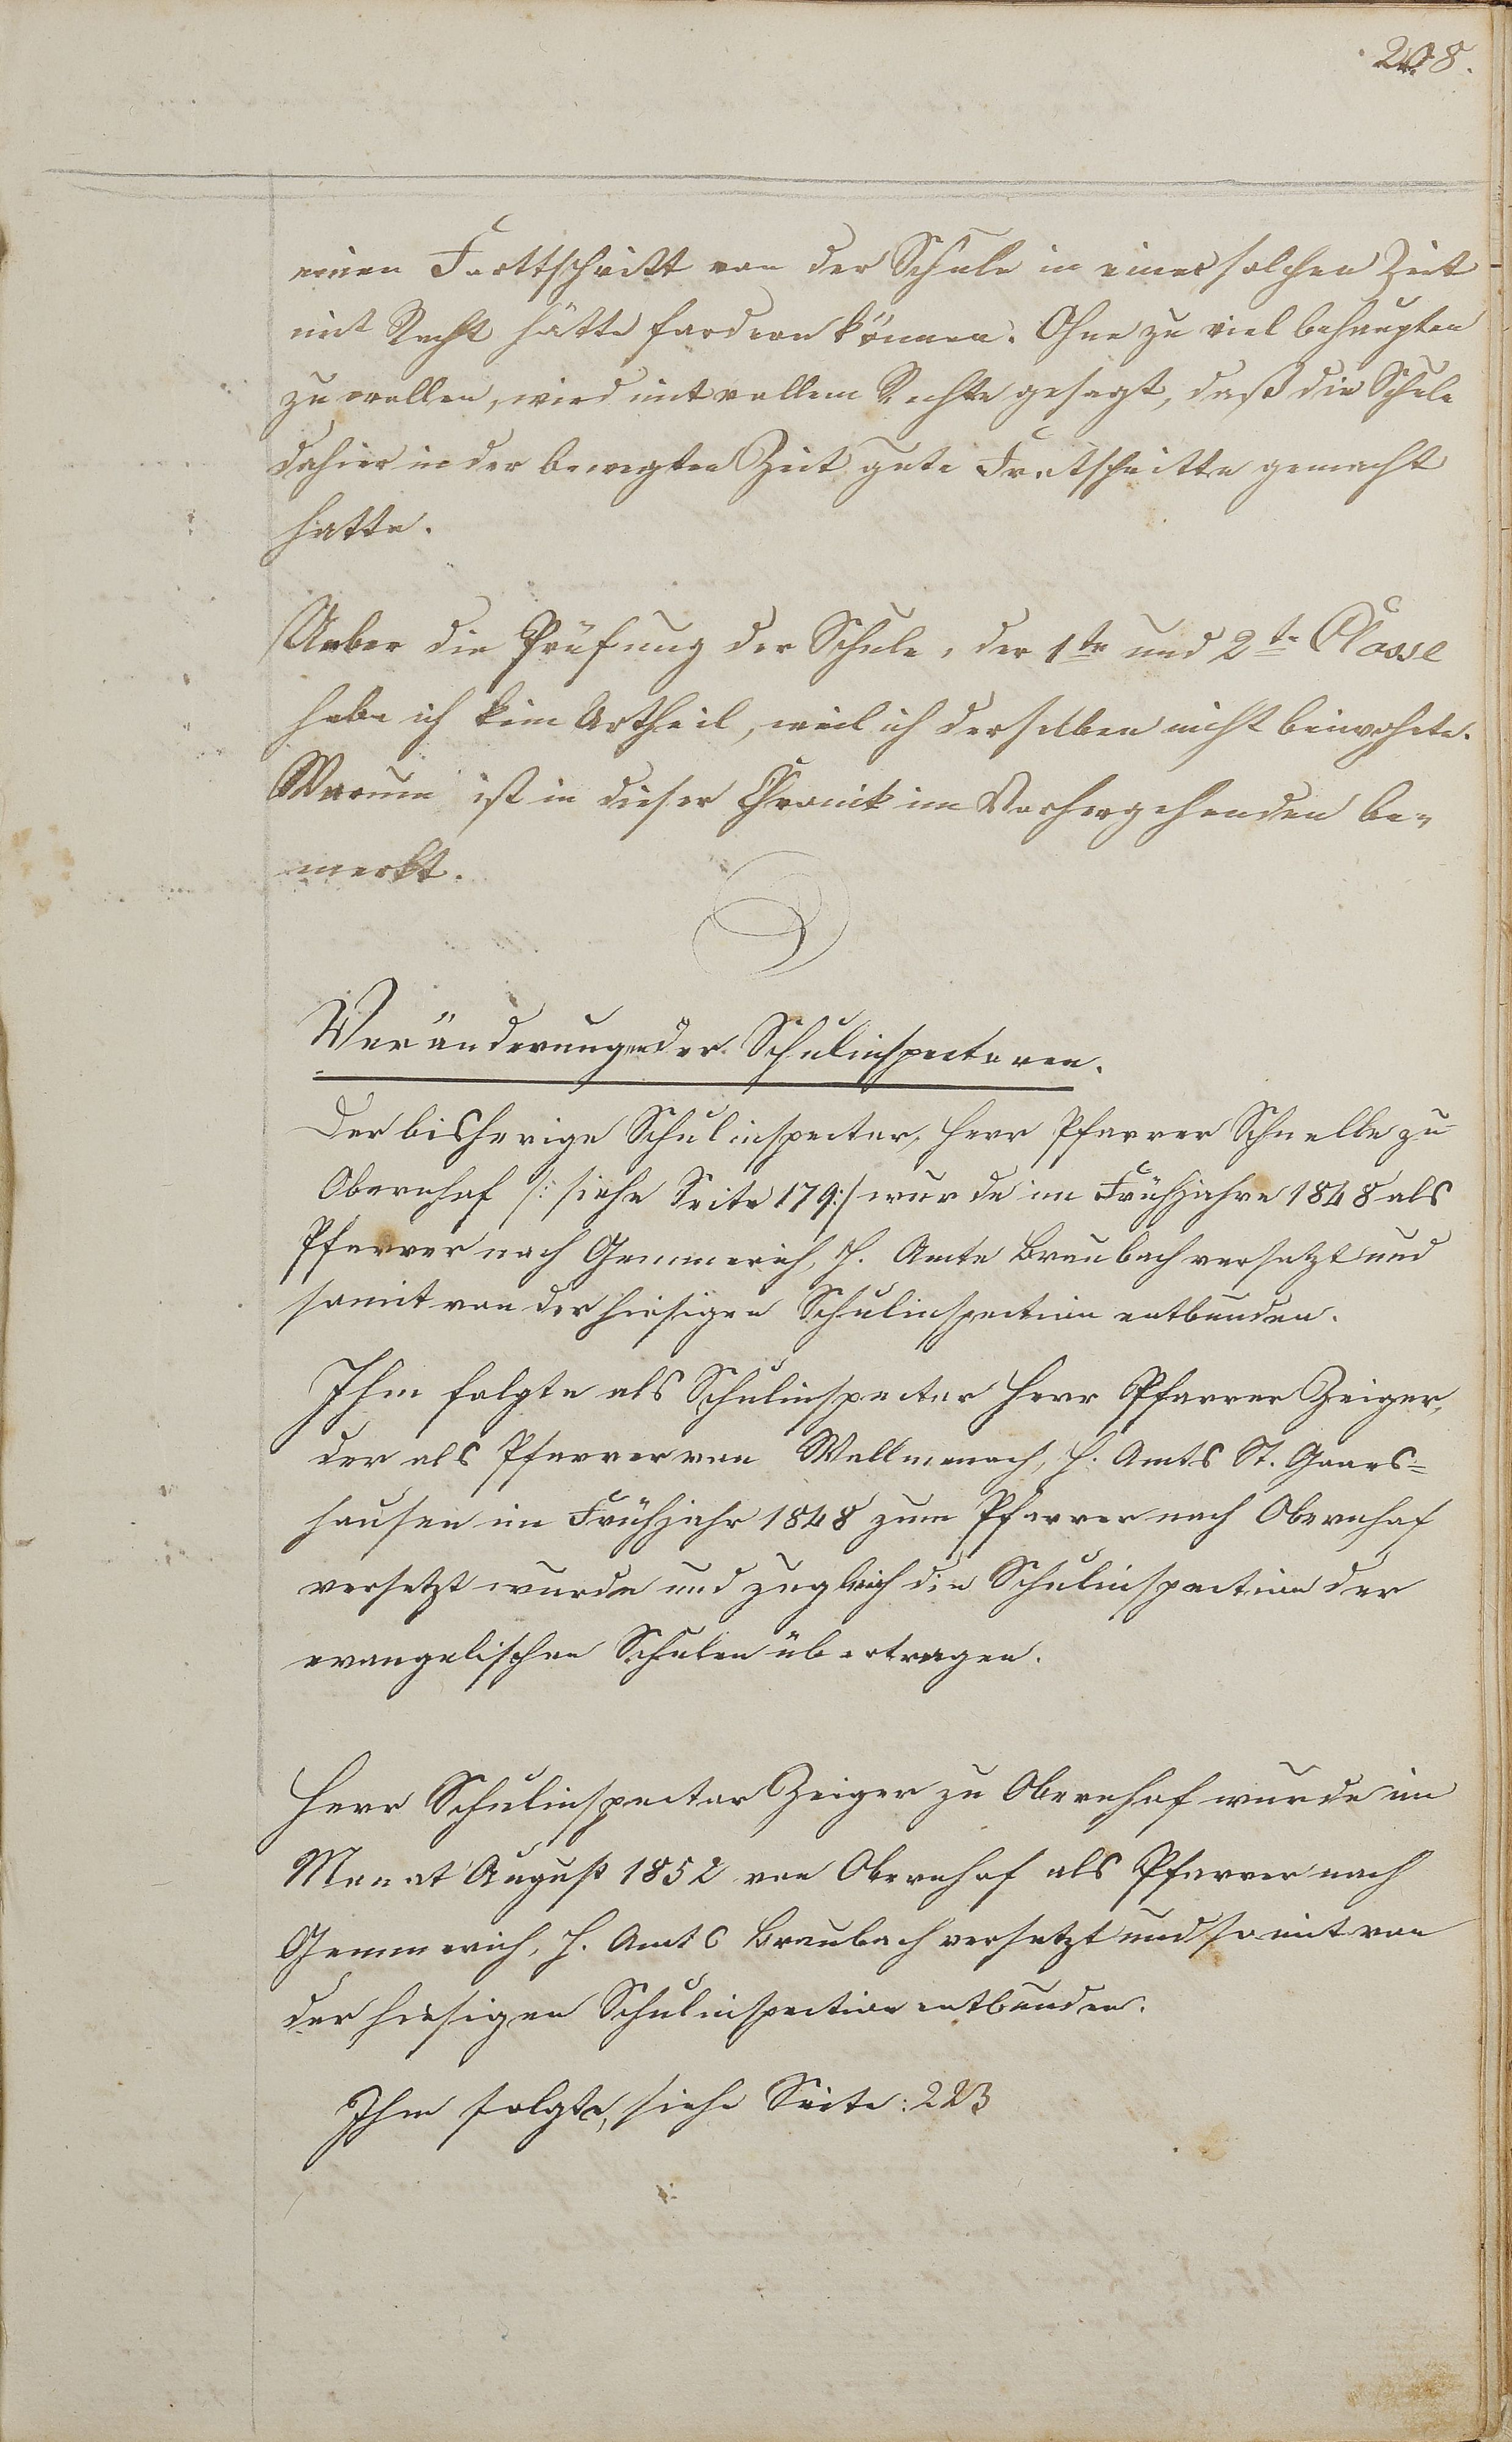 208.
einen Forttschritt von der Schule in einer solchen Zeit
mit Recht hätte fordern können. Ohne zu viel behaupten
zu wollen, wird mit vollem Rechte gesagt, daß die Schule
dahier in der bewegten Zeit gute Fortschritte gemacht
hatte.
Ueber die Prüfung der Schule, der 1te und 2te Classe
habe ich kein Urtheil, weil ich derselben nicht beiwohnte.
Warum ist in dieser Chronik im Vorhergehenden be-
merkt.
Veränderungen der Schulinspectoren.
Der bisherige Schulinspector, Herr Pfarrer Schnelle zu
Obernhof /: siehe Seite 179:/ wurde im Frühjahre 1848 als
Pfarrer nach Gemmerich, H. Amte Braubach versetzt und
somit von der hiesigen Schulinspection entbunden.
Ihm folgte als Schulinspector Herr Pfarrer Zeiger,
der als Pfarrer von Wellmenach, H. Amts St. Goars=
hausen im Frühjahr 1848 zum Pfarrer nach Obernhof
versetzt wurde und zugleich die Schulinspection der
evangelischen Schulen übertragen.
Herr Schulinspector Zeiger zu Obernhof wurde im
Monat August 1852 von Obernhof als Pfarrer nach
Gemmerich, H. Amts Braubach versetzt und somit von
der hiesigen Schulinspection entbunden.
Ihm folgte, siehe Seite: 223